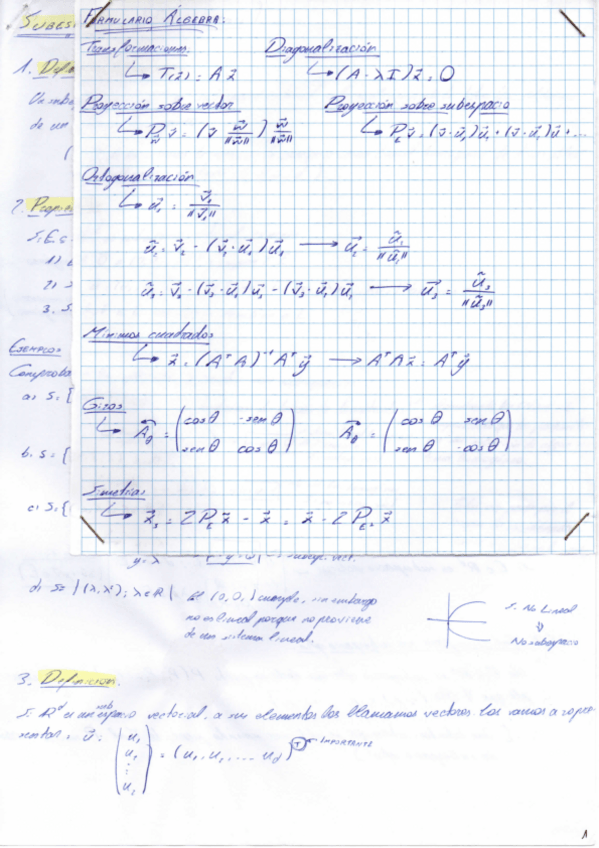 FORMULARIO ALGEBRA:
Transformaciones
Diagonalización
T(x⃗) = A x⃗
(A - λI)x⃗ = 0
Proyección sobre vector
Proyección sobre subespacio
P_w⃗ v⃗ = (v⃗ · w⃗/||w⃗||) w⃗/||w⃗||
P_E v⃗ = (v⃗·u⃗₁)u⃗₁ + (v⃗·u⃗₂)u⃗ + ...
Ortogonalización
u⃗₁ = v⃗₁/||v⃗₁||
ũ₂ = v⃗₂ - (v⃗₂·u⃗₁)u⃗₁ → u⃗₂ = ũ₂/||ũ₂||
ũ₃ = v⃗₃ - (v⃗₃·u⃗₁)u⃗₁ - (v⃗₃·u⃗₂)u⃗₂ → u⃗₃ = ũ₃/||ũ₃||
Mínimos cuadrados
x⃗ = (AᵀA)⁻¹Aᵀy⃗ → AᵀAx⃗ = Aᵀy⃗
Giros
A_θ = (cosθ -senθ
senθ cosθ)
A_θ = (cosθ senθ
senθ -cosθ)
Simetrías
x⃗ₛ = 2P_E x⃗ - x⃗ = x⃗ - 2P_E⊥ x⃗
SUBES
1. Defi
Un sub
de un
2. Propie
S: E.s
1)
2) S
3. S.
EJEMPLOS
Comproba
a: S = {
b. S = {
c. S = {
y = λ
d) S = {(λ, λ²); λ∈R} (0,0,) cumple, sin embargo
no es lineal porque no proviene
de un sistema lineal.
S. No Lineal
⇓
No subespacio
3. Definición.
Si Rᵈ es un sub espacio vectorial, a sus elementos los llamamos vectores. Los vamos a repre-
sentar = u⃗ = (u₁ u₂ ⋮ u₂) = (u₁, u₂, ... u_d)ᵀ ← IMPORTANTE
1